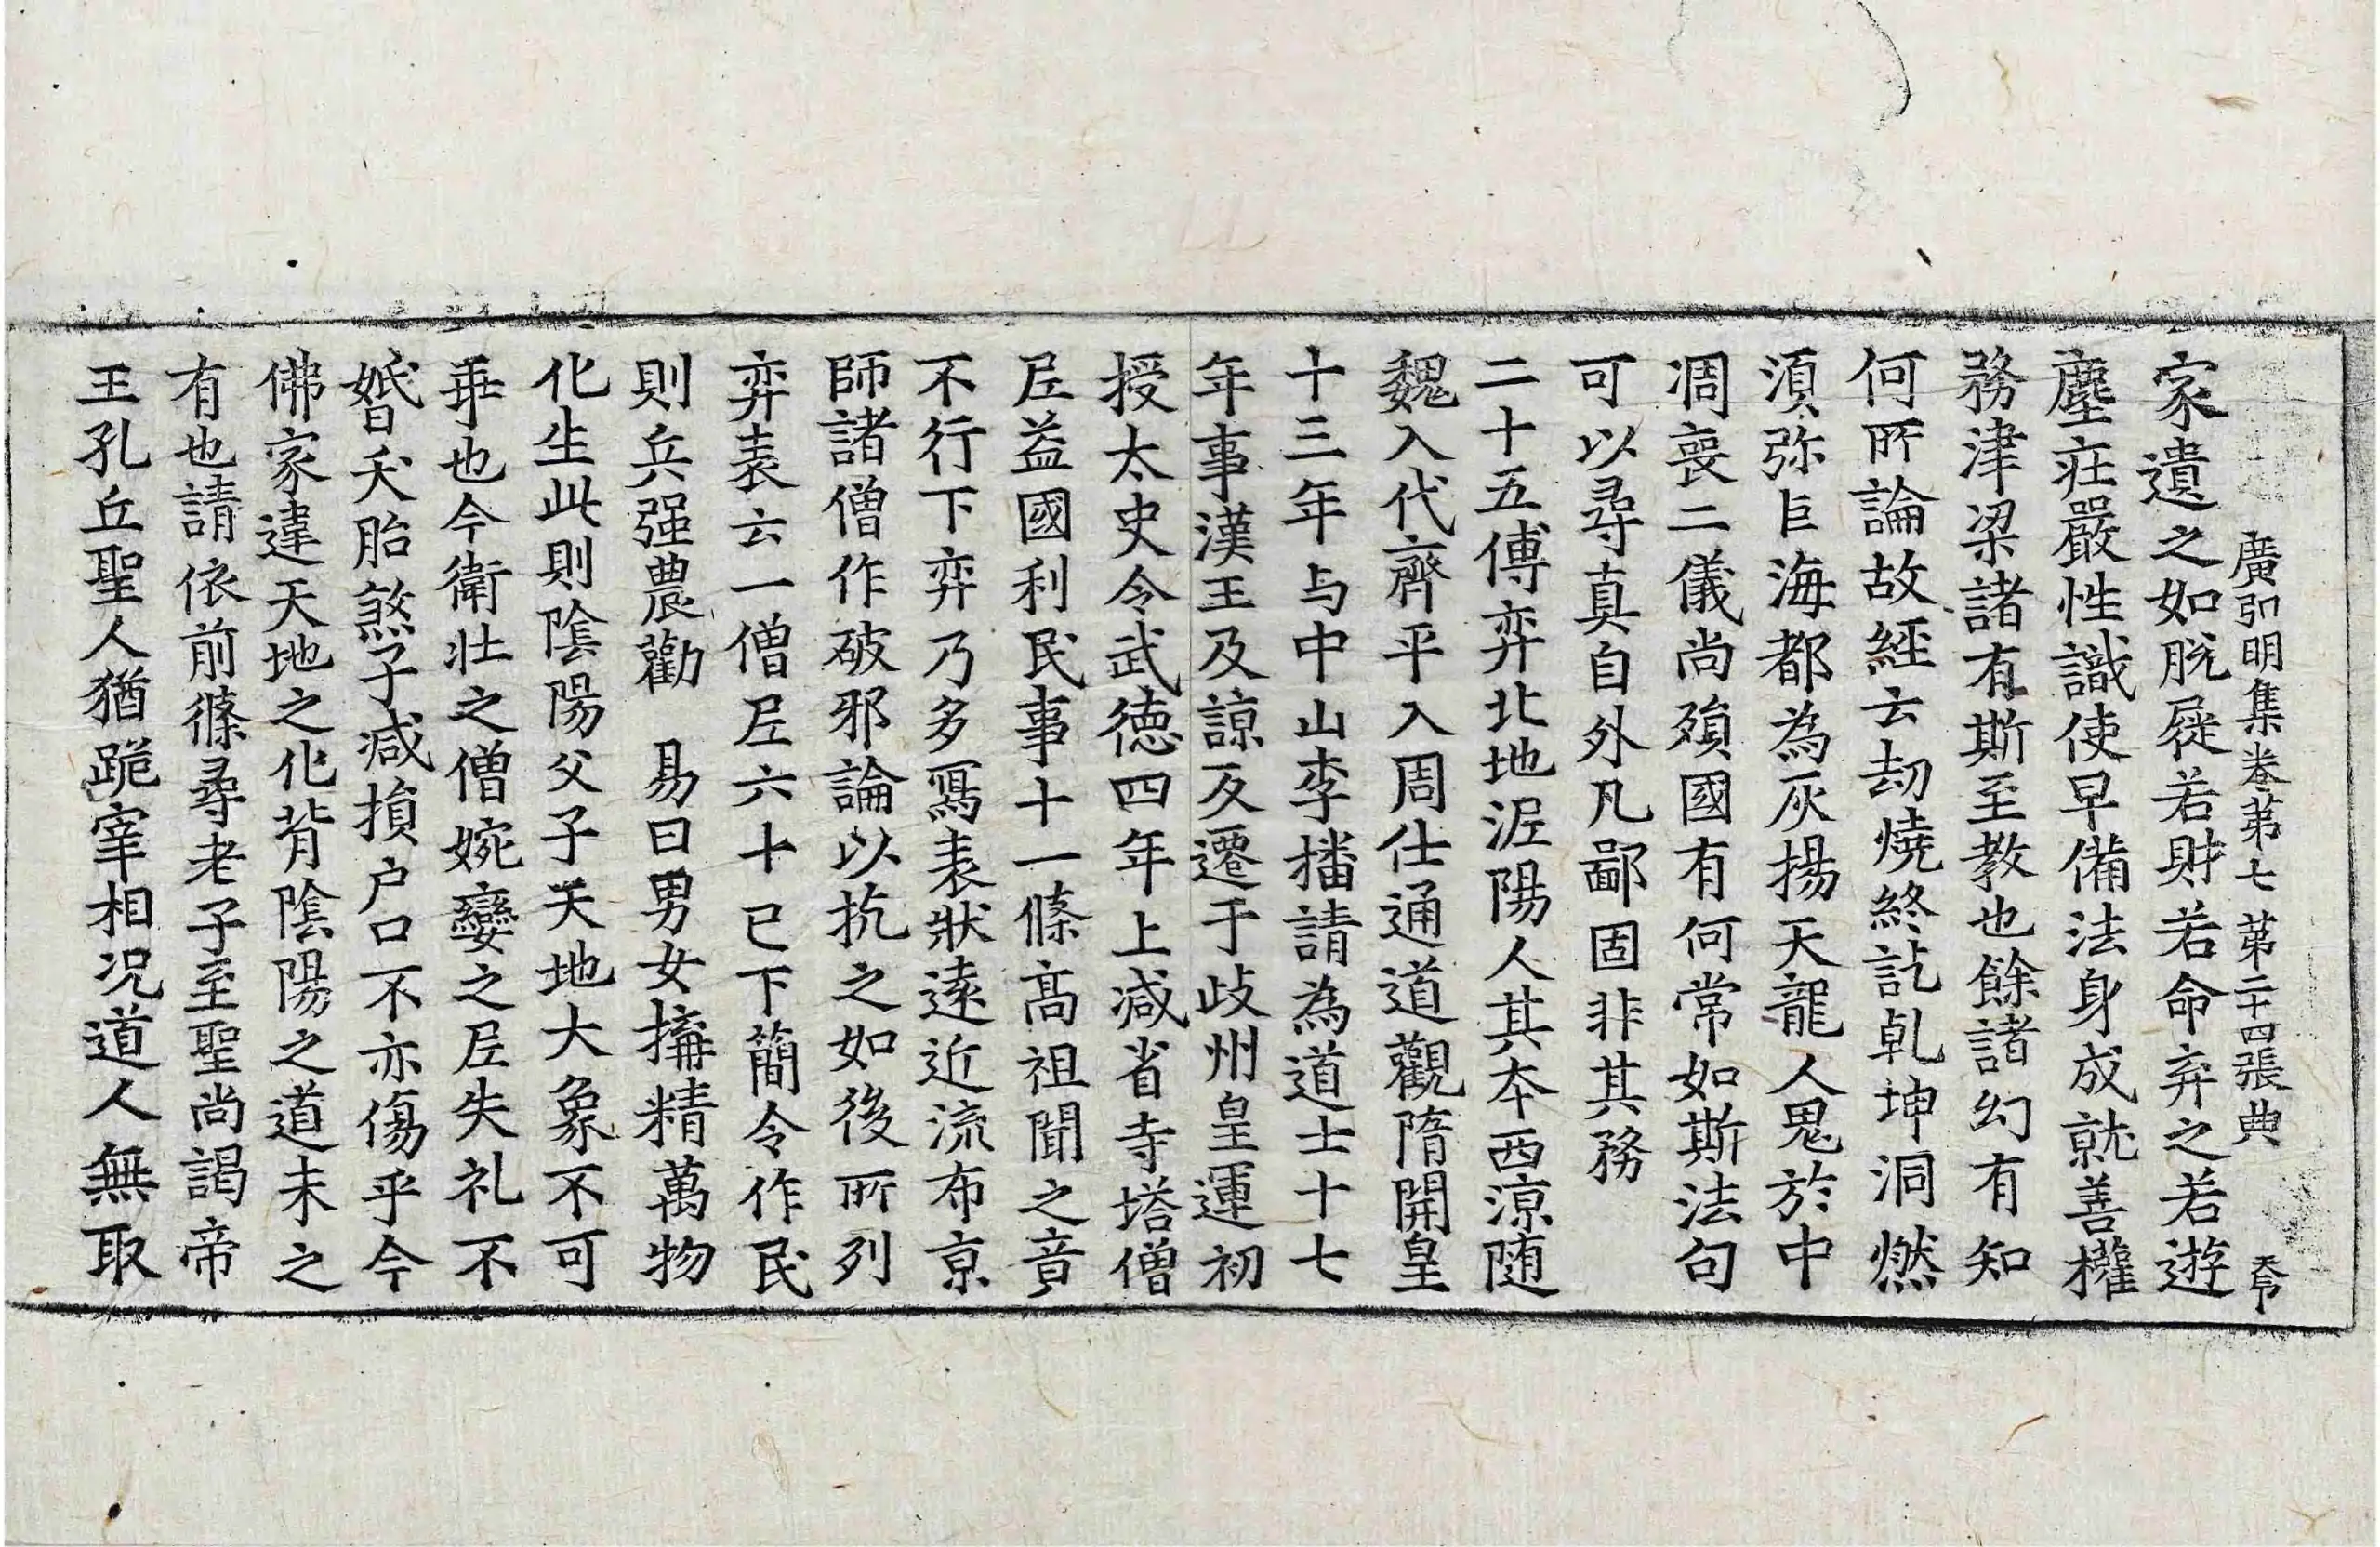 廣弘明集卷第七 第二十四張 典 天印
家遺之如脫屣若財若命弃之若遊
塵莊嚴性識使早備法身成就善權
務津梁諸有斯至教也餘諸幻有知
何所論故經云劫燒終訖乹坤洞燃
湏弥巨海都為灰揚天龍人鬼於中
凋喪二儀尚殞國有何常如斯法句
可以尋真自外凡鄙固非其務
二十五傅弈北地泥陽人其本西涼随
魏入代齊平入周仕通道觀隋開皇
十三年与中山李播請為道士十七
年事漢王及諒反遷于歧州皇運初
授太史令武德四年上减省寺塔僧
尼益國利民事十一條髙祖聞之竟
不行下弈乃多寫表狀遠近流布京
師諸僧作破邪論以抗之如後所列
弈表云一僧尼六十已下簡令作民
則兵强農勸 易曰男女搆精萬物
化生此則陰陽父子天地大象不可
乖也今衛壮之僧婉孌之尼失礼不
婚夭胎煞子减損户口不亦傷乎今
佛家違天地之化背陰陽之道未之
有也請依前條尋老子至聖尚謁帝
王孔丘聖人猶跪宰相况道人無取